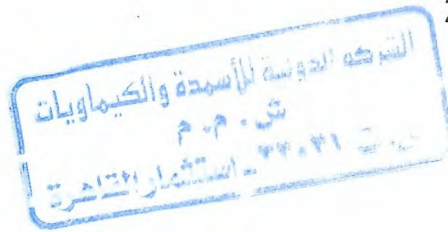 الشركة الدولية للأسمدة والكيماويات
ش . م . م
س . ت ٢٢٠٢١ - استثمار القاهرة